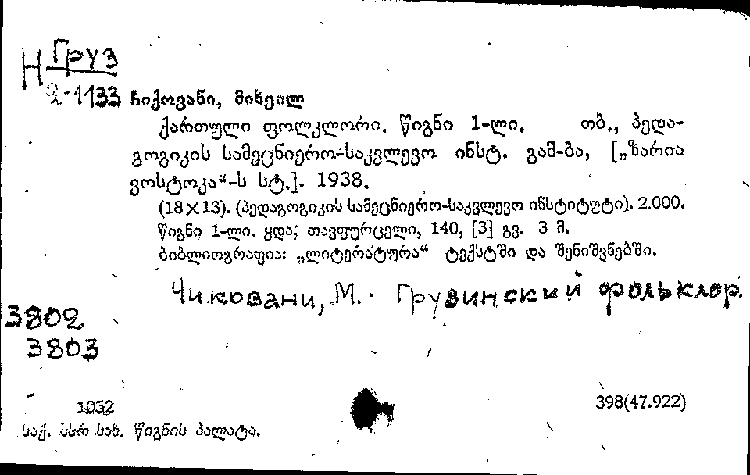 Н Груз
2-1133 ჩიქოვანი, მიხეილ
ქართული ფოლკლორი. წიგნი 1-ლი. თბ., პედა-
გოგიკის სამეცნიერო-საკვლევო ინსტ. გამ-ბა, [„ზარია
ვოსტოკა“-ს სტ.]. 1938.
(18×13). (პედაგოგიკის სამეცნიერო-საკვლევო ინსტიტუტი). 2.000.
წიგნი 1-ლი. ყდა; თავფურცელი, 140, [3] გვ. 3 მ.
ბიბლიოგრაფია: „ლიტერატურა“ ტექსტში და შენიშვნებში.
Чиковани, М. Грузинский фольклор.
3802
3803
1032 398(47.922)
საქ. სსრ სახ. წიგნის პალატა.